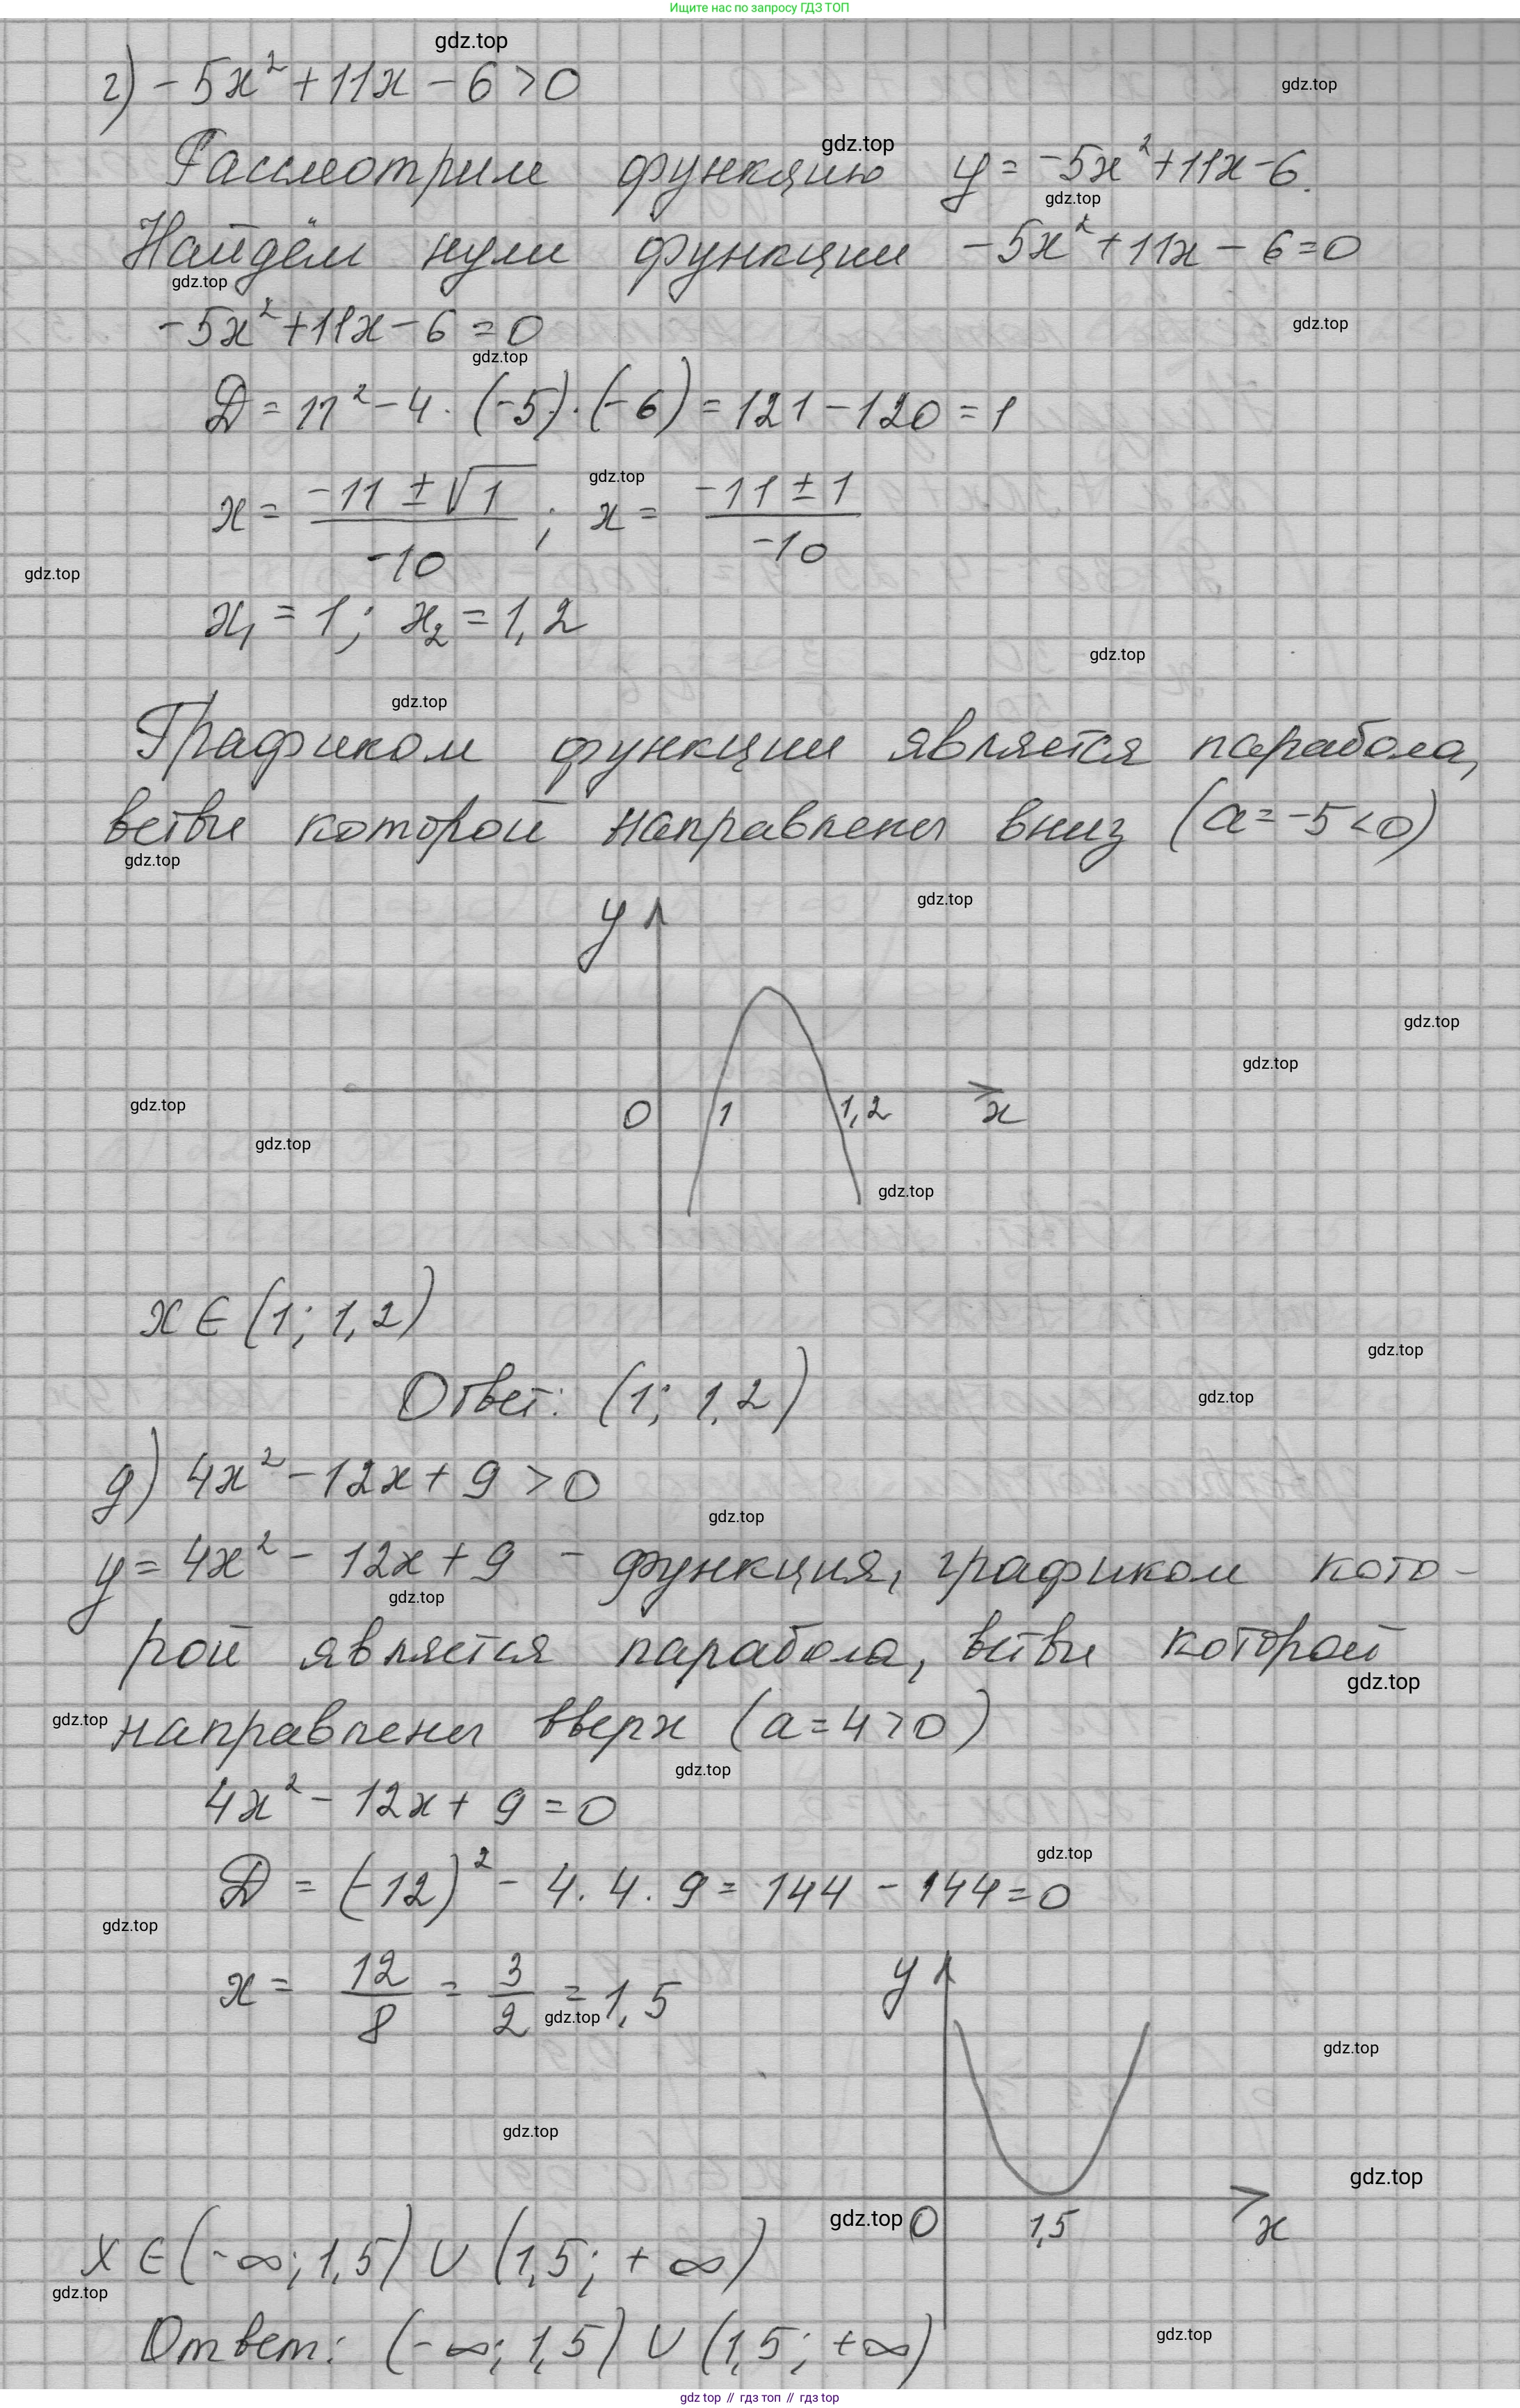 Ищите нас по запросу ГДЗ ТОП
gdz.top
г) -5x² + 11x - 6 > 0
gdz.top
gdz.top
Рассмотрим функцию y = -5x² + 11x - 6.
gdz.top
Найдём нули функции -5x² + 11x - 6 = 0
gdz.top
-5x² + 11x - 6 = 0
gdz.top
gdz.top
D = 11² - 4 · (-5) · (-6) = 121 - 120 = 1
gdz.top
x = (-11 ± √1)/(-10) ; x = (-11 ± 1)/(-10)
gdz.top
x₁ = 1; x₂ = 1,2
gdz.top
gdz.top
Графиком функции является парабола,
ветви которой направлены вниз (a = -5 < 0)
gdz.top
gdz.top
y
gdz.top
gdz.top
gdz.top
0 1 1,2 x
gdz.top
gdz.top
x ∈ (1; 1,2)
gdz.top
Ответ: (1; 1,2)
gdz.top
д) 4x² - 12x + 9 > 0
gdz.top
y = 4x² - 12x + 9 - функция, графиком кото-
gdz.top
рой является парабола, ветви которой
gdz.top
gdz.top
направлены вверх (a = 4 > 0)
gdz.top
4x² - 12x + 9 = 0
gdz.top
D = (-12)² - 4 · 4 · 9 = 144 - 144 = 0
gdz.top
x = 12/8 = 3/2 = 1,5
gdz.top
y
gdz.top
gdz.top
gdz.top
gdz.top
0 1,5 x
x ∈ (-∞; 1,5) ∪ (1,5; +∞)
gdz.top
Ответ: (-∞; 1,5) ∪ (1,5; +∞)
gdz.top
gdz top // гдз топ // гдз top